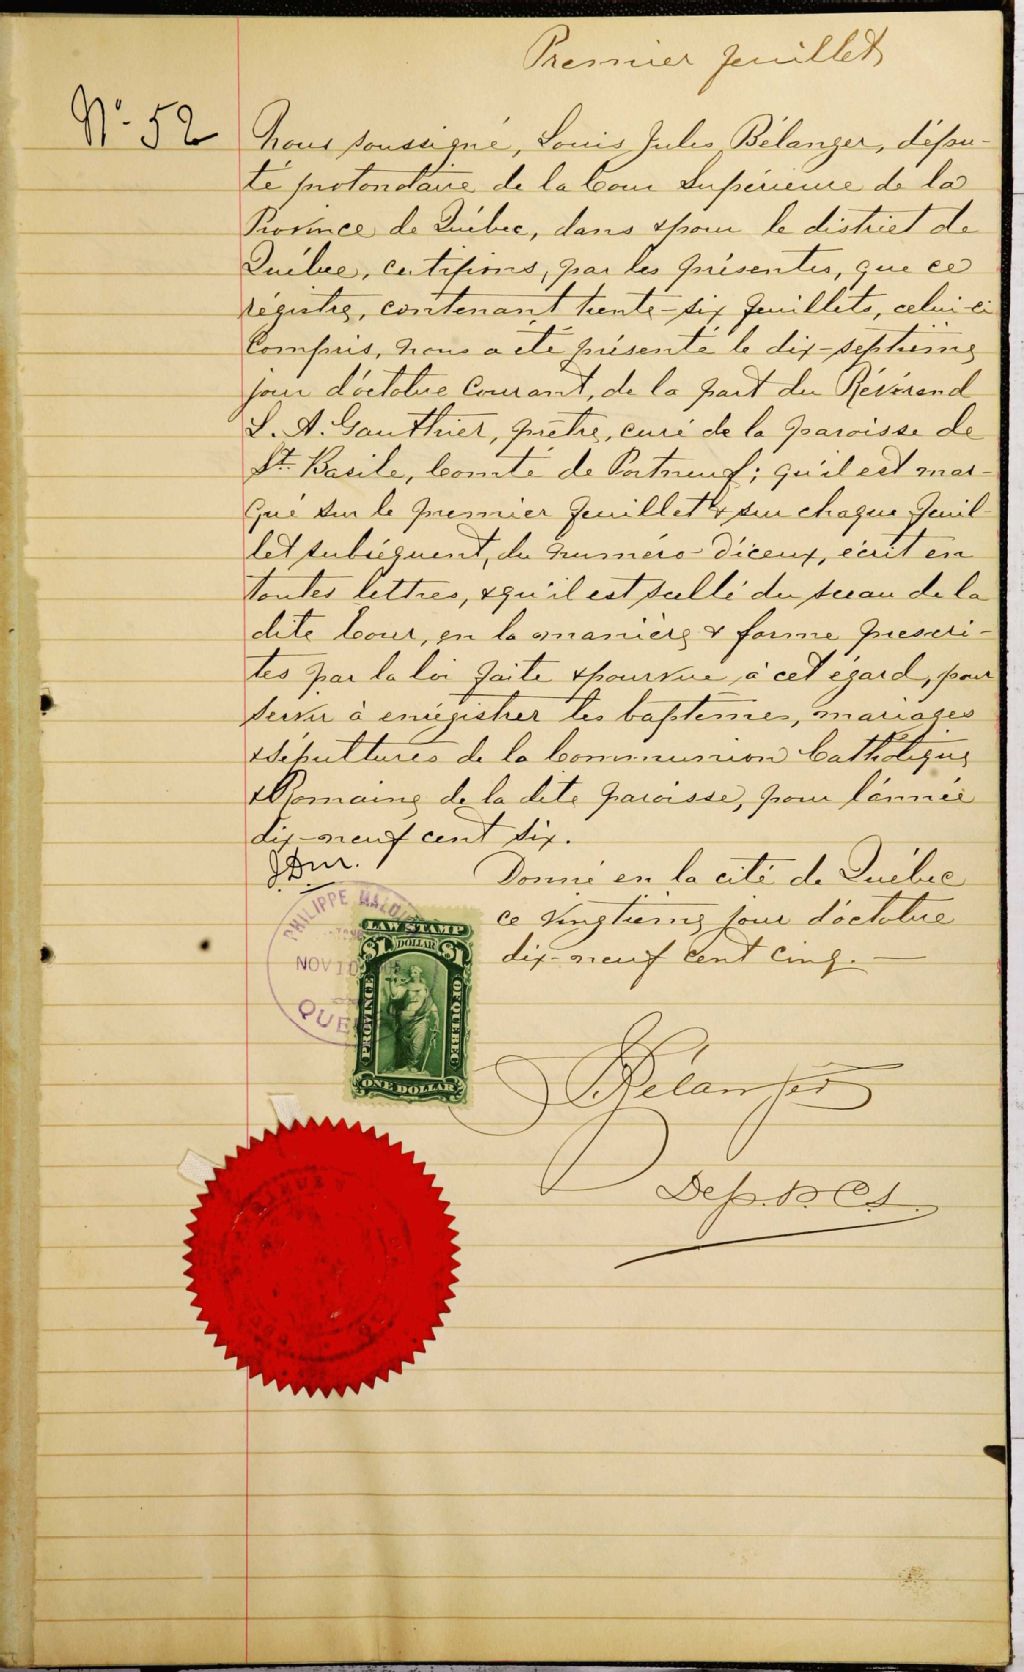 Premier feuillet
No 52
Nous soussigné, Louis Jules Bélanger, dépu-
té protonotaire de la Cour Supérieure de la
Province de Québec, dans & pour le district de
Québec, certifions, par les présentes, que ce
régistre, contenant trente-six feuillets, celui-ci
compris, nous a été présenté le dix-septième
jour d'octobre courant, de la part du Révérend
L. A. Gauthier, prêtre, curé de la paroisse de
St. Basile, Comté de Portneuf; qu'il est mar-
qué sur le premier feuillet & sur chaque feuil-
let subséquent, du numéro d'iceux, écrit en
toutes lettres, & qu'il est scellé du sceau de la
dite Cour, en la manière & forme prescri-
tes par la loi faite & pourvue à cet égard, pour
servir à enrégistrer les baptêmes, mariages
& sépultures de la Communion Catholique
& Romaine de la dite paroisse, pour l'année
dix-neuf cent six.
J.D.M.
Donné en la cité de Québec
ce vingtième jour d'octobre
dix-neuf cent cinq.
PHILIPPE
NOV 10
QUE
LAW STAMP
$1 DOLLAR $1
PROVINCE OF QUEBEC
ONE DOLLAR
Bélanger
Dep. P. C. S.